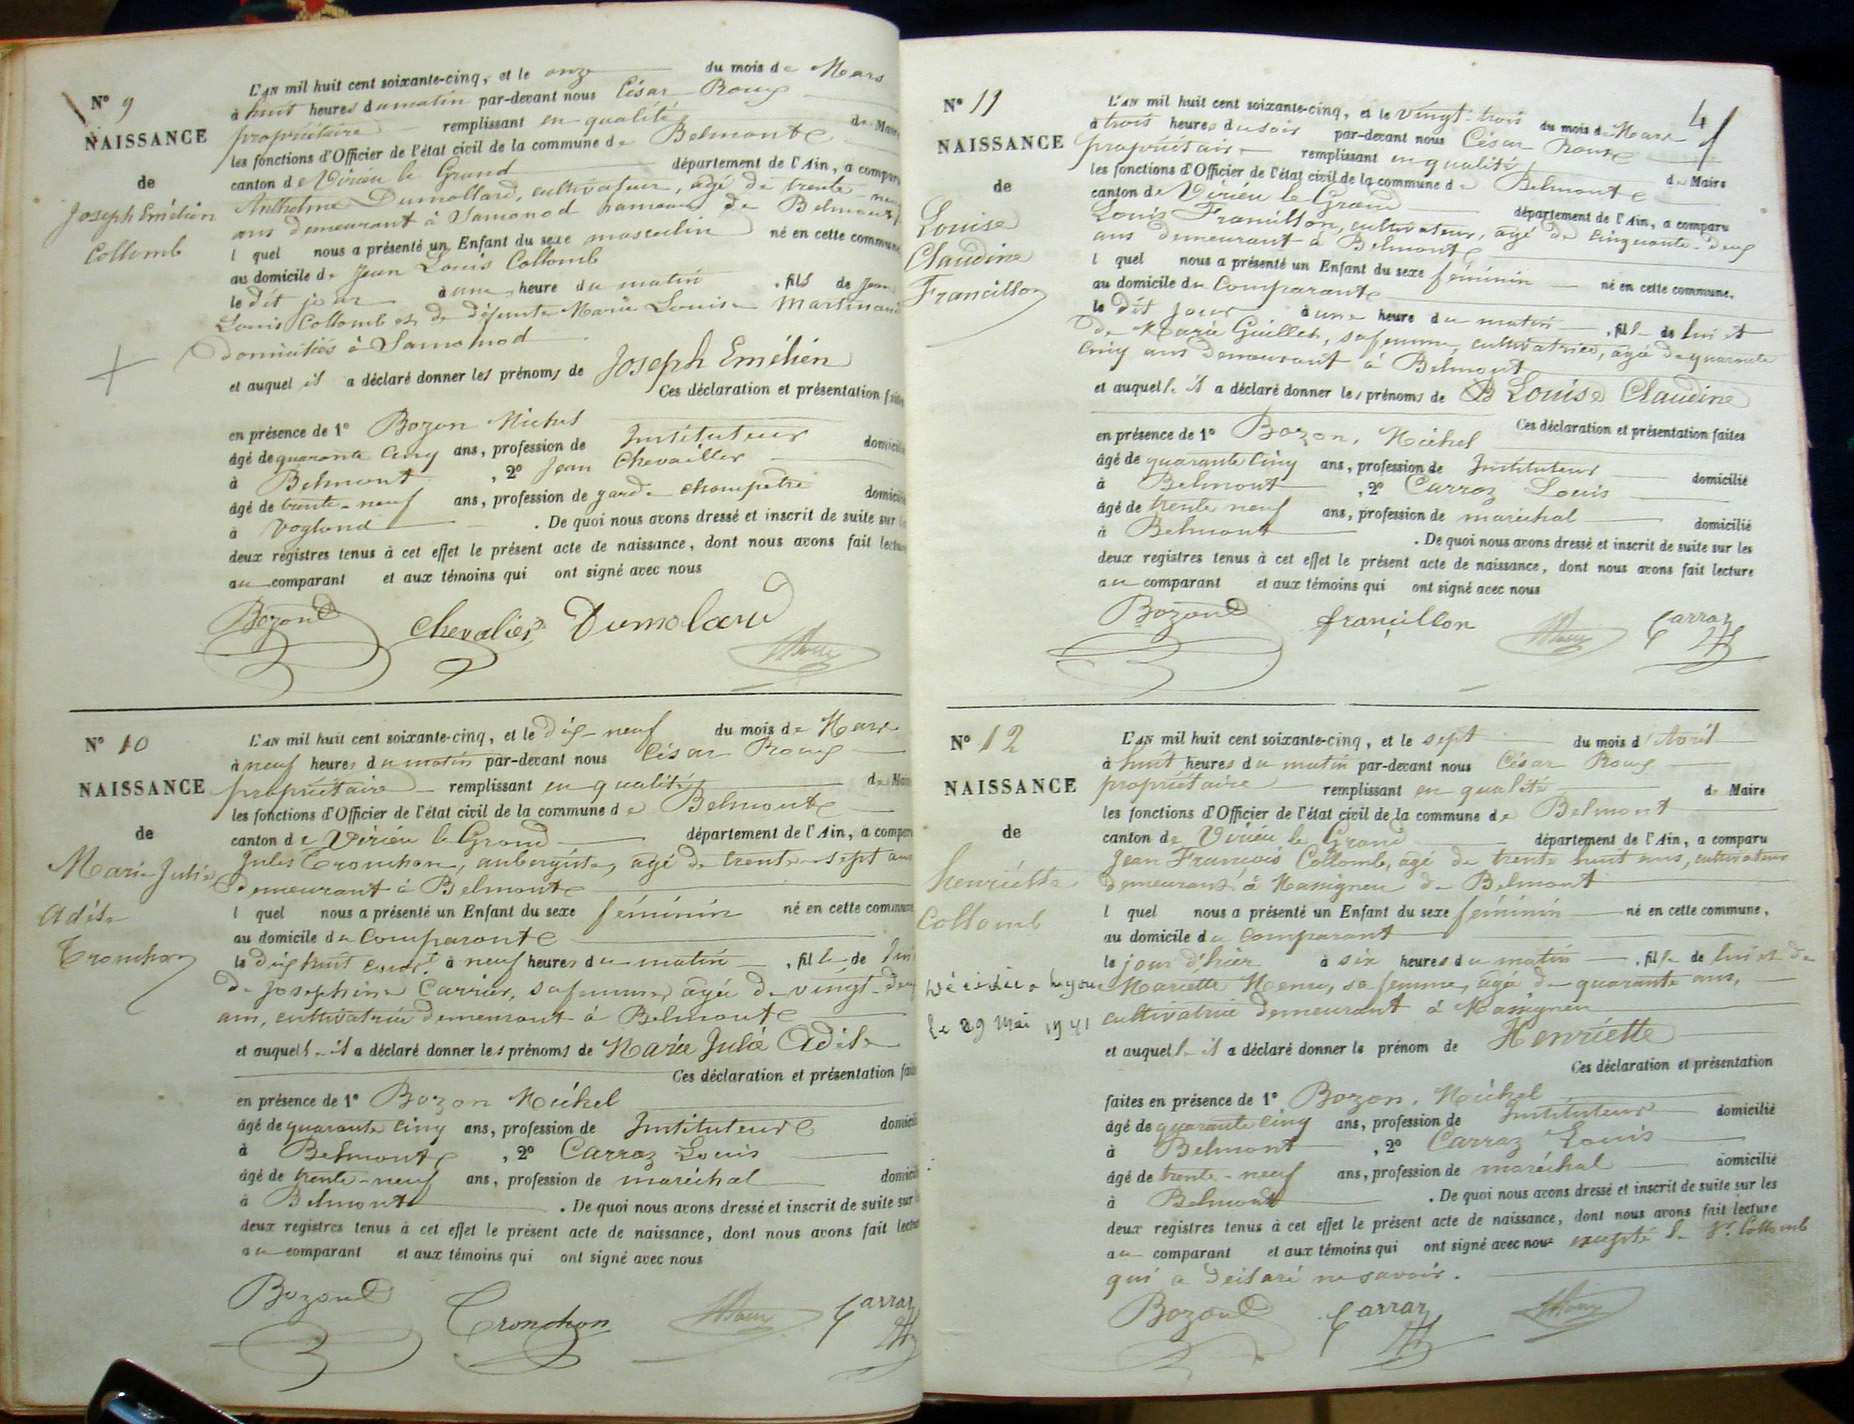 N° 9
NAISSANCE
de
Joseph Emélien
Collomb
L'AN mil huit cent soixante-cinq, et le onze du mois de Mars
à huit heures du matin par-devant nous César Roux
propriétaire remplissant en qualité de Maire
les fonctions d'Officier de l'état civil de la commune de Belmont
canton de Virieu le Grand département de l'Ain, a comparu
Anthelme Dumollard, cultivateur, agé de trente-neuf
ans demeurant à Samonod hameau de Belmont
lequel nous a présenté un Enfant du sexe masculin né en cette commune
au domicile de Jean Louis Collomb
le dit jour à une heure du matin, fils de Jean
Louis Collomb et de défunte Marie Louise Martinand
domiciliés à Samonod
et auquel il a déclaré donner les prénoms de Joseph Emélien
Ces déclaration et présentation faites
en présence de 1° Bozon Michel
âgé de quarante cinq ans, profession de Instituteur domicilié
à Belmont, 2° Jean Chevailler
âgé de trente-neuf ans, profession de garde champetre domicilié
à Vogland. De quoi nous avons dressé et inscrit de suite sur les
deux registres tenus à cet effet le présent acte de naissance, dont nous avons fait lecture
au comparant et aux témoins qui ont signé avec nous
Bozon Chevalier Dumolard
N° 10
NAISSANCE
de
Marie Julie
Adèle
Tronchon
L'AN mil huit cent soixante-cinq, et le dix-neuf du mois de Mars
à neuf heures du matin par-devant nous César Roux
propriétaire remplissant en qualité de Maire
les fonctions d'Officier de l'état civil de la commune de Belmont
canton de Virieu le Grand département de l'Ain, a comparu
Jules Tronchon, aubergiste, agé de trente-sept ans
demeurant à Belmont
lequel nous a présenté un Enfant du sexe féminin né en cette commune
au domicile du Comparant
le dix huit court à neuf heures du matin, fille de lui
de Josephine Carrier, sa femme, agée de vingt-deux
ans, cultivatrice demeurant à Belmont
et auquelle il a déclaré donner les prénoms de Marie Julie Adèle
Ces déclaration et présentation faites
en présence de 1° Bozon Michel
âgé de quarante cinq ans, profession de Instituteur domicilié
à Belmont, 2° Carraz Louis
âgé de trente-neuf ans, profession de maréchal domicilié
à Belmont. De quoi nous avons dressé et inscrit de suite sur les
deux registres tenus à cet effet le présent acte de naissance, dont nous avons fait lecture
au comparant et aux témoins qui ont signé avec nous
Bozon Tronchon Carraz
4
N° 11
NAISSANCE
de
Louise
Claudine
Francillon
L'AN mil huit cent soixante-cinq, et le vingt-trois du mois de Mars
à trois heures du soir par-devant nous César Roux
propriétaire remplissant en qualité de Maire
les fonctions d'Officier de l'état civil de la commune de Belmont
canton de Virieu le Grand département de l'Ain, a comparu
Louis Francillon, cultivateur, agé de cinquante-deux
ans demeurant à Belmont
lequel nous a présenté un Enfant du sexe féminin né en cette commune,
au domicile du Comparant
le dit jour à une heure du matin, fille de lui et
de Marie Guillet, sa femme, cultivatrice, agée de quarante
cinq ans demeurant à Belmont
et auquelle il a déclaré donner les prénoms de Louise Claudine
Ces déclaration et présentation faites
en présence de 1° Bozon, Michel
âgé de quarante cinq ans, profession de Instituteur domicilié
à Belmont, 2° Carraz Louis
âgé de trente neuf ans, profession de maréchal domicilié
à Belmont. De quoi nous avons dressé et inscrit de suite sur les
deux registres tenus à cet effet le présent acte de naissance, dont nous avons fait lecture
au comparant et aux témoins qui ont signé avec nous
Bozon françillon Carraz
N° 12
NAISSANCE
de
Henriette
Collomb
Décédée à Lyon
le 29 Mai 1941
L'AN mil huit cent soixante-cinq, et le sept du mois d'Avril
à huit heures du matin par-devant nous César Roux
propriétaire remplissant en qualité de Maire
les fonctions d'Officier de l'état civil de la commune de Belmont
canton de Virieu le Grand département de l'Ain, a comparu
Jean François Collomb, agé de trente huit ans, cultivateur
demeurant à Massigneu de Belmont
lequel nous a présenté un Enfant du sexe féminin né en cette commune,
au domicile du comparant
le jour d'hier à six heures du matin, fille de lui et de
Mariette Henri, sa femme, agée de quarante ans,
cultivatrice demeurant à Massigneu
et auquelle il a déclaré donner le prénom de Henriette
Ces déclaration et présentation
faites en présence de 1° Bozon, Michel
âgé de quarante cinq ans, profession de Instituteur domicilié
à Belmont, 2° Carraz Louis
âgé de trente-neuf ans, profession de maréchal domicilié
à Belmont. De quoi nous avons dressé et inscrit de suite sur les
deux registres tenus à cet effet le présent acte de naissance, dont nous avons fait lecture
au comparant et aux témoins qui ont signé avec nous excepté le Sr Collomb
qui a déclaré ne savoir.
Bozon Carraz